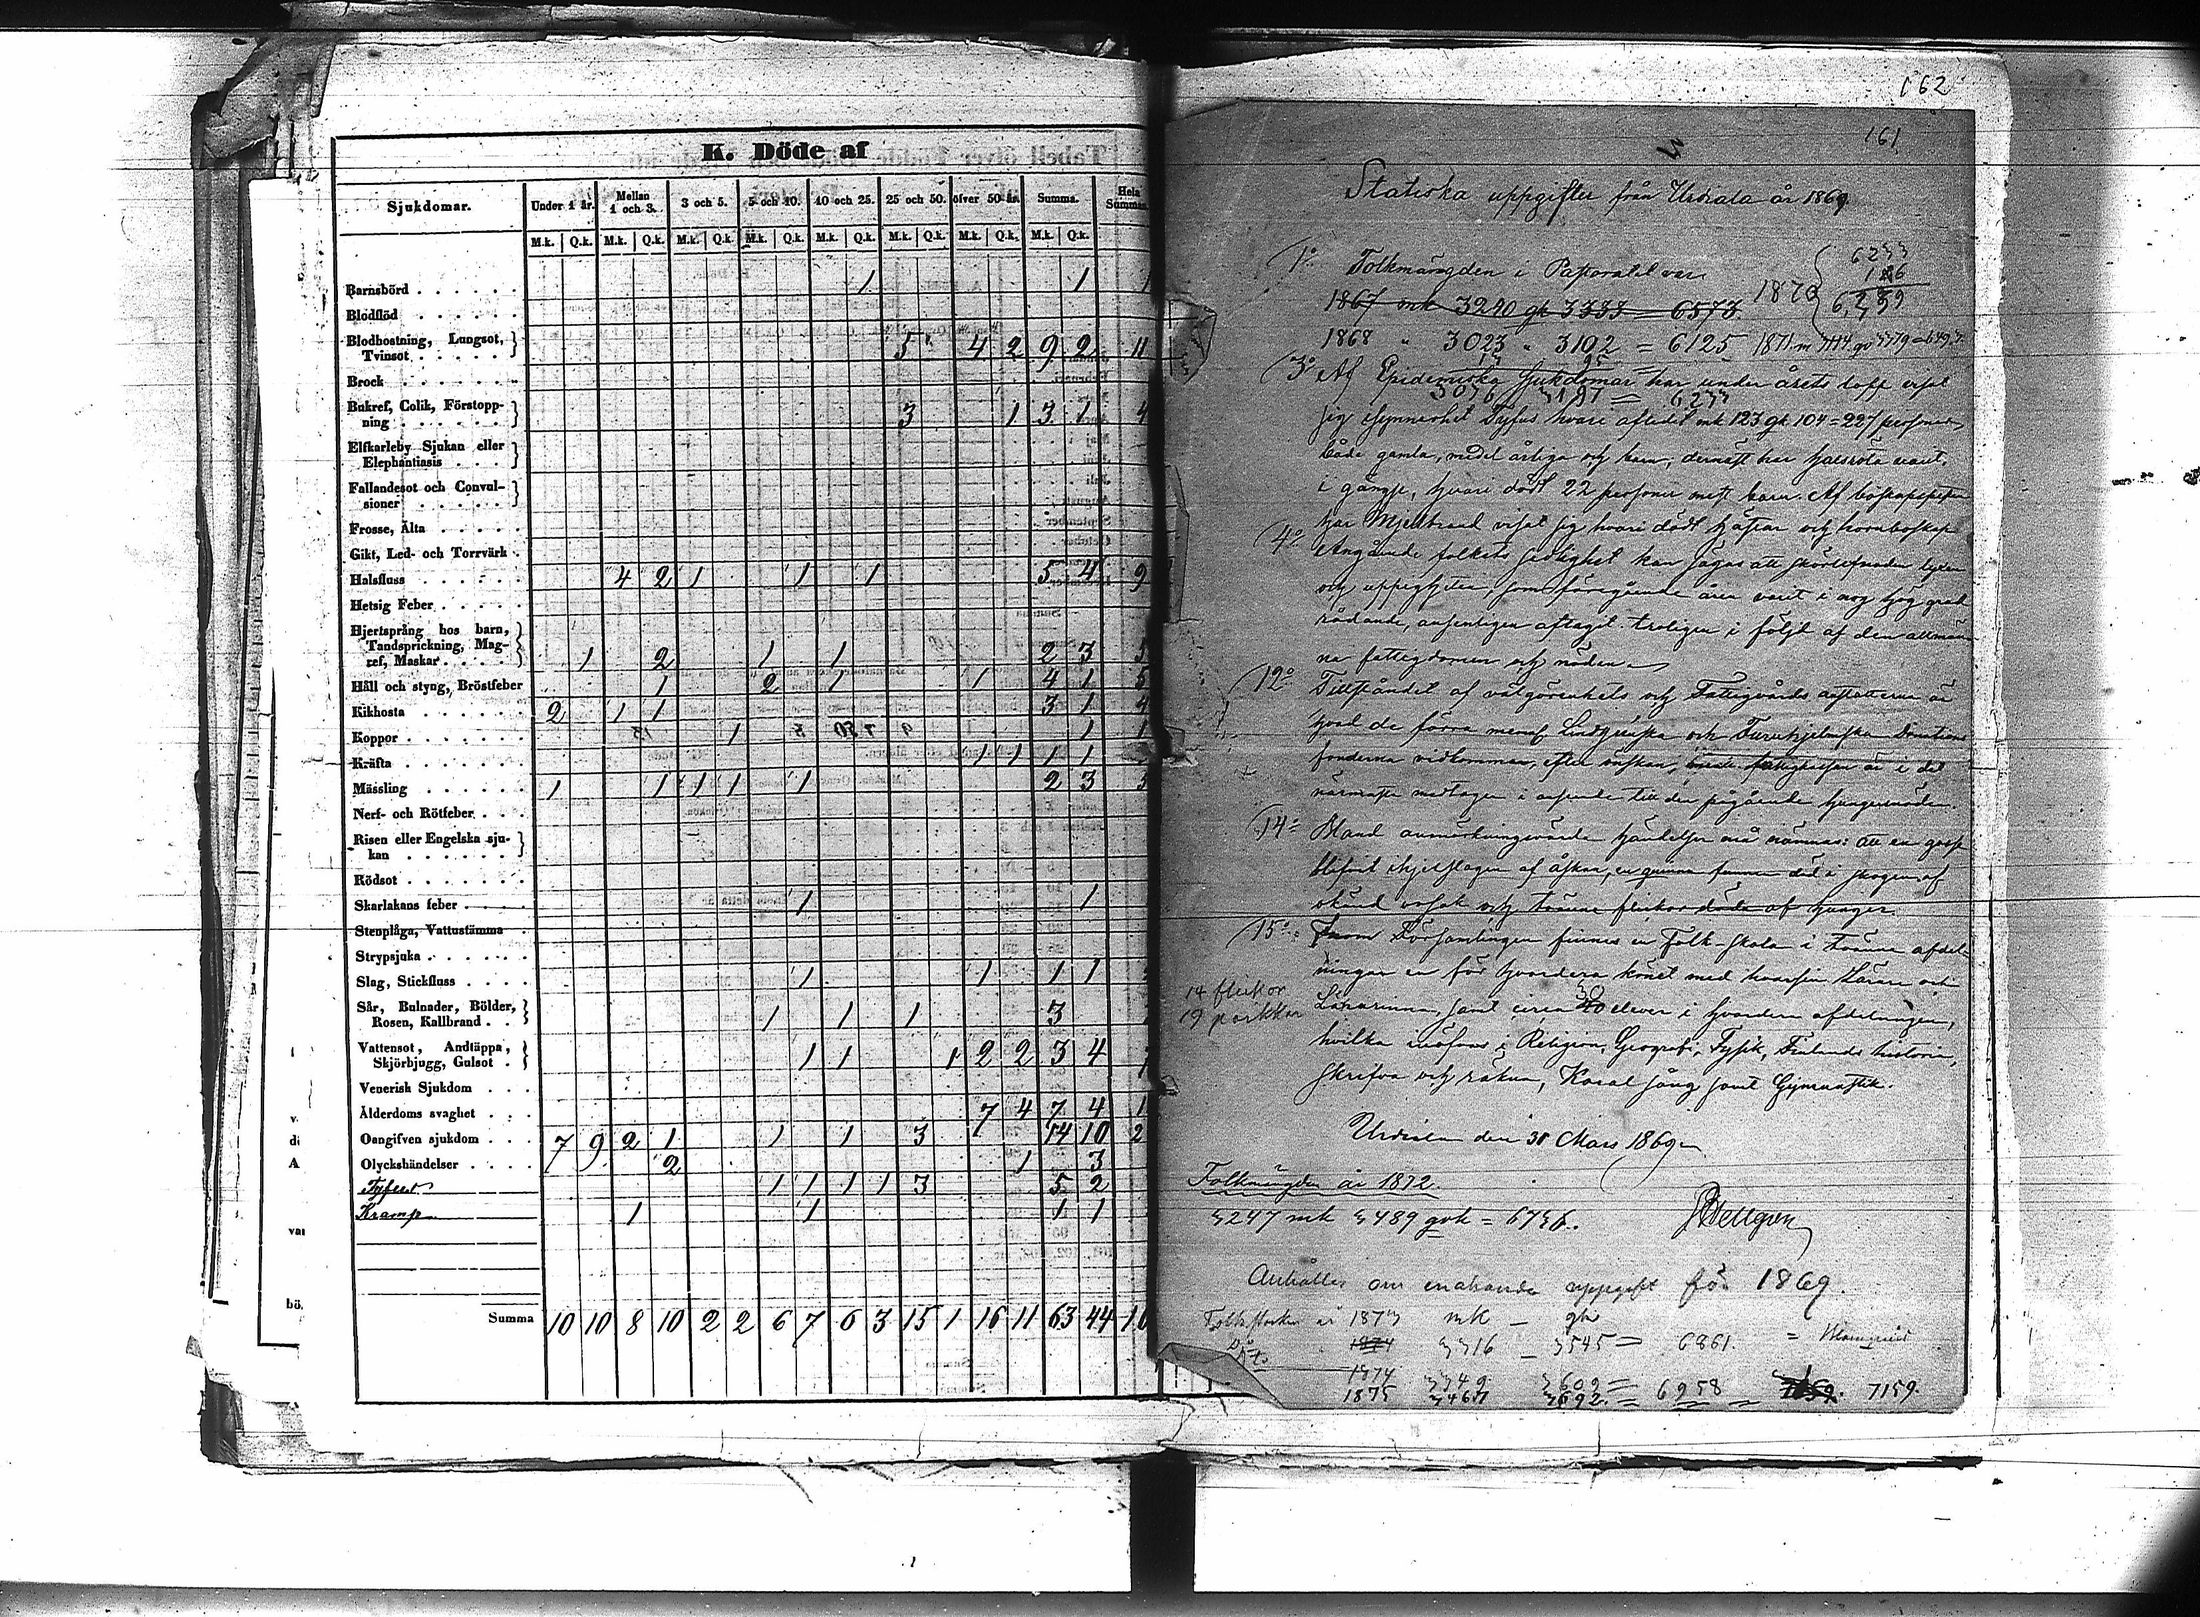 K. Döde af
Sjukdomar. Under 1 år. Mellan 1 och 3. 3 och 5. 5 och 10. 10 och 25. 25 och 50. öfver 50 år. Summa. Hela Summan.
M.k. Q.k. M.k. Q.k. M.k. Q.k. M.k. Q.k. M.k. Q.k. M.k. Q.k. M.k. Q.k. M.k. Q.k.
Barnsbörd 1 1 1
Blodflöd
Blodhostning, Lungsot,
Tvinsot 5 4 2 9 2 11
Brock
Bukref, Colik, Förstopp-
ning 3 1 3 1 4
Elfkarleby Sjukan eller
Elephantiasis
Fallandesot och Convul-
sioner
Frosse, Älta
Gikt, Led- och Torrvärk
Halsfluss 4 2 1 1 1 5 4 9
Hetsig Feber
Hjertsprång hos barn,
Tandsprickning, Mag-
ref, Maskar 1 2 1 1 2 3 5
Håll och styng, Bröstfeber 1 2 1 1 4 1 5
Kikhosta 2 1 1 3 1 4
Koppor 1 1 1
Kräfta 1 1 1 1
Mässling 1 1 1 1 1 2 3 5
Nerf- och Rötfeber
Risen eller Engelska sju-
kan
Rödsot
Skarlakans feber 1 1
Stenplåga, Vattustämma
Strypsjuka
Slag, Stickfluss 1 1 1 1
Sår, Bulnader, Bölder,
Rosen, Kallbrand 1 1 1 3
Vattensot, Andtäppa,
Skjörbjugg, Gulsot 1 1 1 2 2 3 4
Venerisk Sjukdom
Ålderdoms svaghet 7 4 7 4 1
Oangifven sjukdom 7 9 2 1 1 1 3 14 10 2
Olyckshändelser 2 1 3
Tyfus 1 1 1 1 3 5 2
Kramp 1 1 1 1
Summa 10 10 8 10 2 2 6 7 6 3 15 1 16 11 63 44 10
162
161
Statiska uppgifter från Urdiala år 1869
1º Folkmängden i Pastoratet var
1867 mk 3240 qk 3333 = 6573
1868 " 3023 " 3102 = 6125
1870 6233
6,239
3º Af Epidemiska Sjukdomar har under årets lopp visat
6233
sig synnerhet Tyfus hvari aflidit mk 123 qk 104 = 227 personer
både gamla, medel årliga och barn; dernäst har halsröta varit
i gängse, hvari dödt 22 personer mest barn. Af
har Mjeltbrand visat sig hvari dödt hästar och hornboskap
4º Angående folkets sedlighet kan sägas att
och som föregående åren varit i nog hög grad
rådande, ansenligen aftagit troligen i följd af den allmän
na fattigdomen och nöden.
12º Tillståndet af välgörenhets och Fattigvårds anstalterna är
hvad de förra
fonderna vidkommer, efter önskan, i det
närmaste medtagen i anseende till den pågående hungersnöden.
14º Bland anmärkningsvärda händelser må nämnas: att en
blifvit ihjelslagen af åskan, en qvinna funnen död i skogen af
okänd orsak och tvänne flickor döda af hunger.
15º Inom Församlingen finnes en Folk-skola i tvänne afdel-
ningar en för hvardera könet med hvarsin Lärare och
14 flickor
19 poikkar
Lärarinna, samt circa 30 elever i hvardera afdelningen,
hvilka inöfvas i Religion, Geografi, Fysik, Finlands historia,
skrifva och räkna, Koral sång samt Gymnastik.
Urdiala den 31 Mars 1869
Folkmängden år 1872.
3247 mk 3489 qvk = 6736.
Anhålles om enahanda uppgift för 1869.
1873 mk — qk
3316 — 3545 = 6861.
1874 3349 3609 = 6958
1875 3467 3692 = 7159.